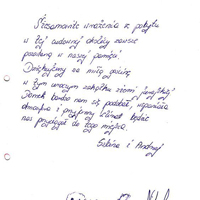 Niesamowite wrażenia z pobytu
w tej cudownej okolicy zawsze
pozostaną w naszej pamięci.
Dziękujemy za miłą gościnę
w tym uroczym zakątku ziemi
Domek bardzo nam się podobał, wspaniała
atmosfera i przyjemny klimat będzie
nas przyciągać do tego miejsca.
i Andrzej